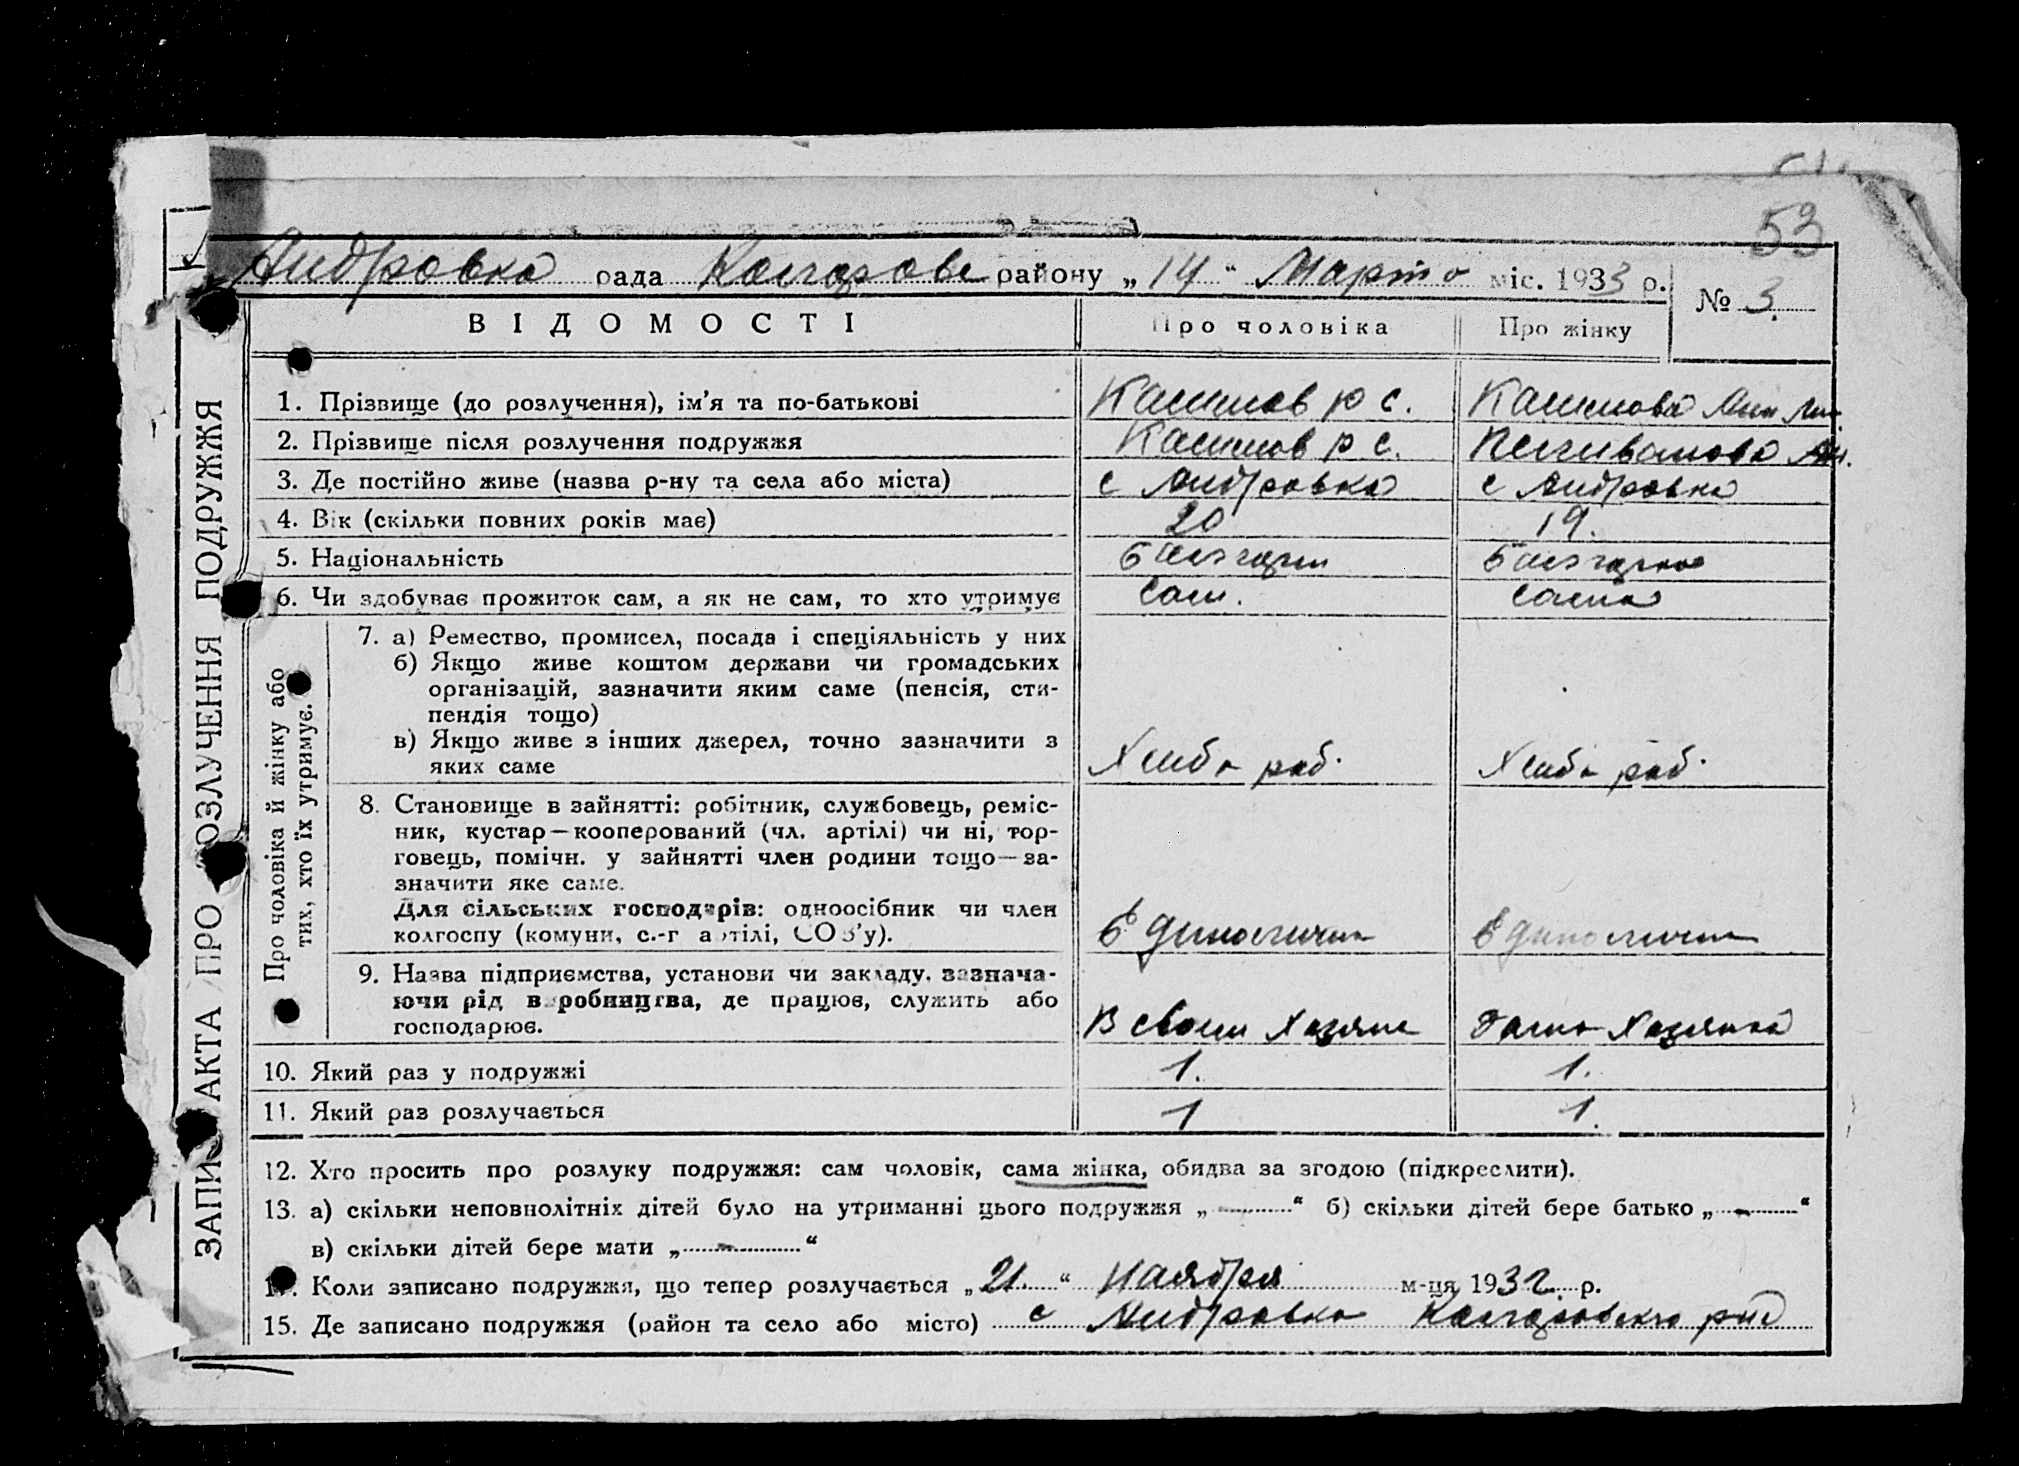 53
Андровка рада Колларовс району „14“ Марта міс. 1933 р.
№ 3.
ВІДОМОСТІ Про чоловіка Про жінку
1. Прізвище (до розлучення), ім'я та по-батькові
2. Прізвище після розлучення подружжя
3. Де постійно живе (назва р-ну та села або міста) с Андровка с Андровка
4. Вік (скільки повних років має) 20 19.
5. Національність Балгарин Балгарка
6. Чи здобуває прожиток сам, а як не сам, то хто утримує Сам. Сама
Про чоловіка й жінку або
тих, хто їх утримує.
7. а) Ремество, промисел, посада і спеціяльність у них
б) Якщо живе коштом держави чи громадських
організацій, зазначити яким саме (пенсія, сти-
пендія тощо)
в) Якщо живе з інших джерел, точно зазначити з
яких саме Хлиба раб. Хлиба раб.
8. Становище в зайнятті: робітник, службовець, реміс-
ник, кустар—кооперований (чл. артілі) чи ні, тор-
говець, помічн. у зайнятті член родини тощо—за-
значити яке саме.
Для сільських господарів: одноосібник чи член
колгоспу (комуни, с.-г артілі, СОЗ'у).
9. Назва підприємства, установи чи закладу, зазнача-
ючи рід виробництва, де працює, служить або
господарює.
10. Який раз у подружжі 1. 1.
11. Який раз розлучається 1 1.
12. Хто просить про розлуку подружжя: сам чоловік, сама жінка, обидва за згодою (підкреслити).
13. а) скільки неповнолітніх дітей було на утриманні цього подружжя „ — “ б) скільки дітей бере батько „ — “
в) скільки дітей бере мати „ — “
14. Коли записано подружжя, що тепер розлучається „21.“ Наября м-ця 1932 р.
15. Де записано подружжя (район та село або місто) с Андровка
ЗАПИС АКТА ПРО РОЗЛУЧЕННЯ ПОДРУЖЖЯ